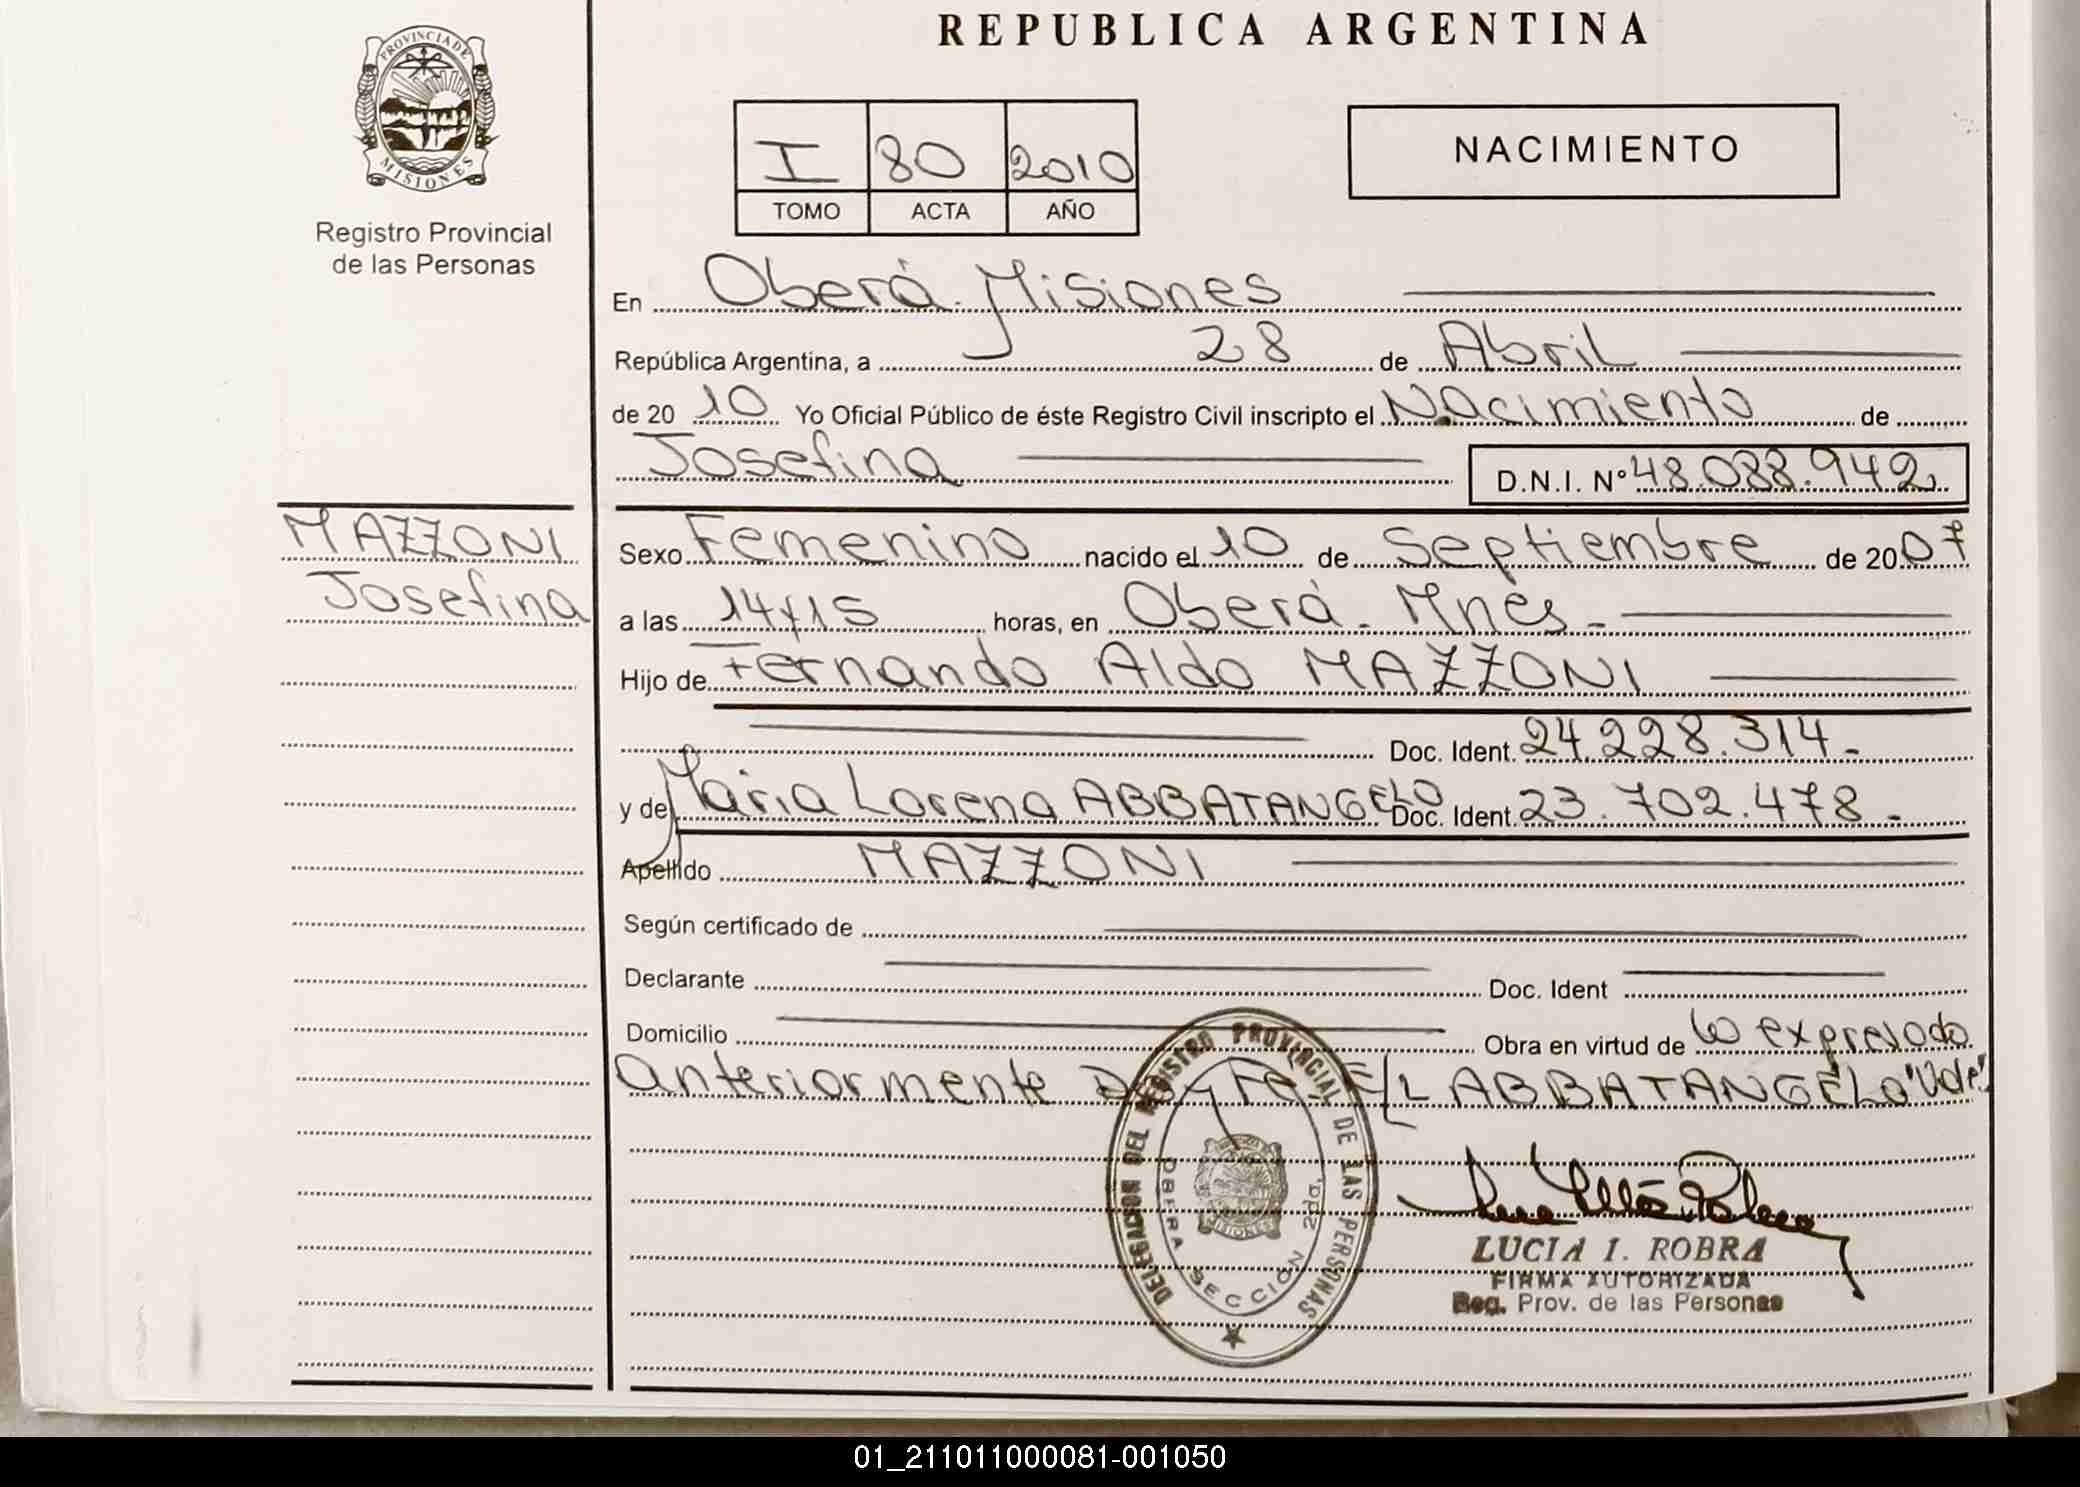 REPUBLICA ARGENTINA
PROVINCIA DE MISIONES
Registro Provincial
de las Personas
I 80 2010
TOMO ACTA AÑO
NACIMIENTO
En Oberá. Misiones
República Argentina, a 28 de Abril
de 2010 Yo Oficial Público de éste Registro Civil inscripto el Nacimiento de
Josefina D.N.I. Nº 48.088.942
MAZZONI
Josefina
Sexo Femenino nacido el 10 de Septiembre de 2007
a las 14y15 horas, en Oberá. Mnes.
Hijo de Fernando Aldo MAZZONI
Doc. Ident. 24.228.314.
y de Maria Lorena ABBATANGELO Doc. Ident. 23.702.478.
Apellido MAZZONI
Según certificado de
Declarante Doc. Ident
Domicilio Obra en virtud de lo expresado
anteriormente Doy Fe. E/L ABBATANGELO "Vale"
DELEGACION DEL REGISTRO PROVINCIAL DE LAS PERSONAS
OBERA SECCIÓN 2da.
MISIONES
LUCIA I. ROBRA
FIRMA AUTORIZADA
Reg. Prov. de las Personas
01_211011000081-001050